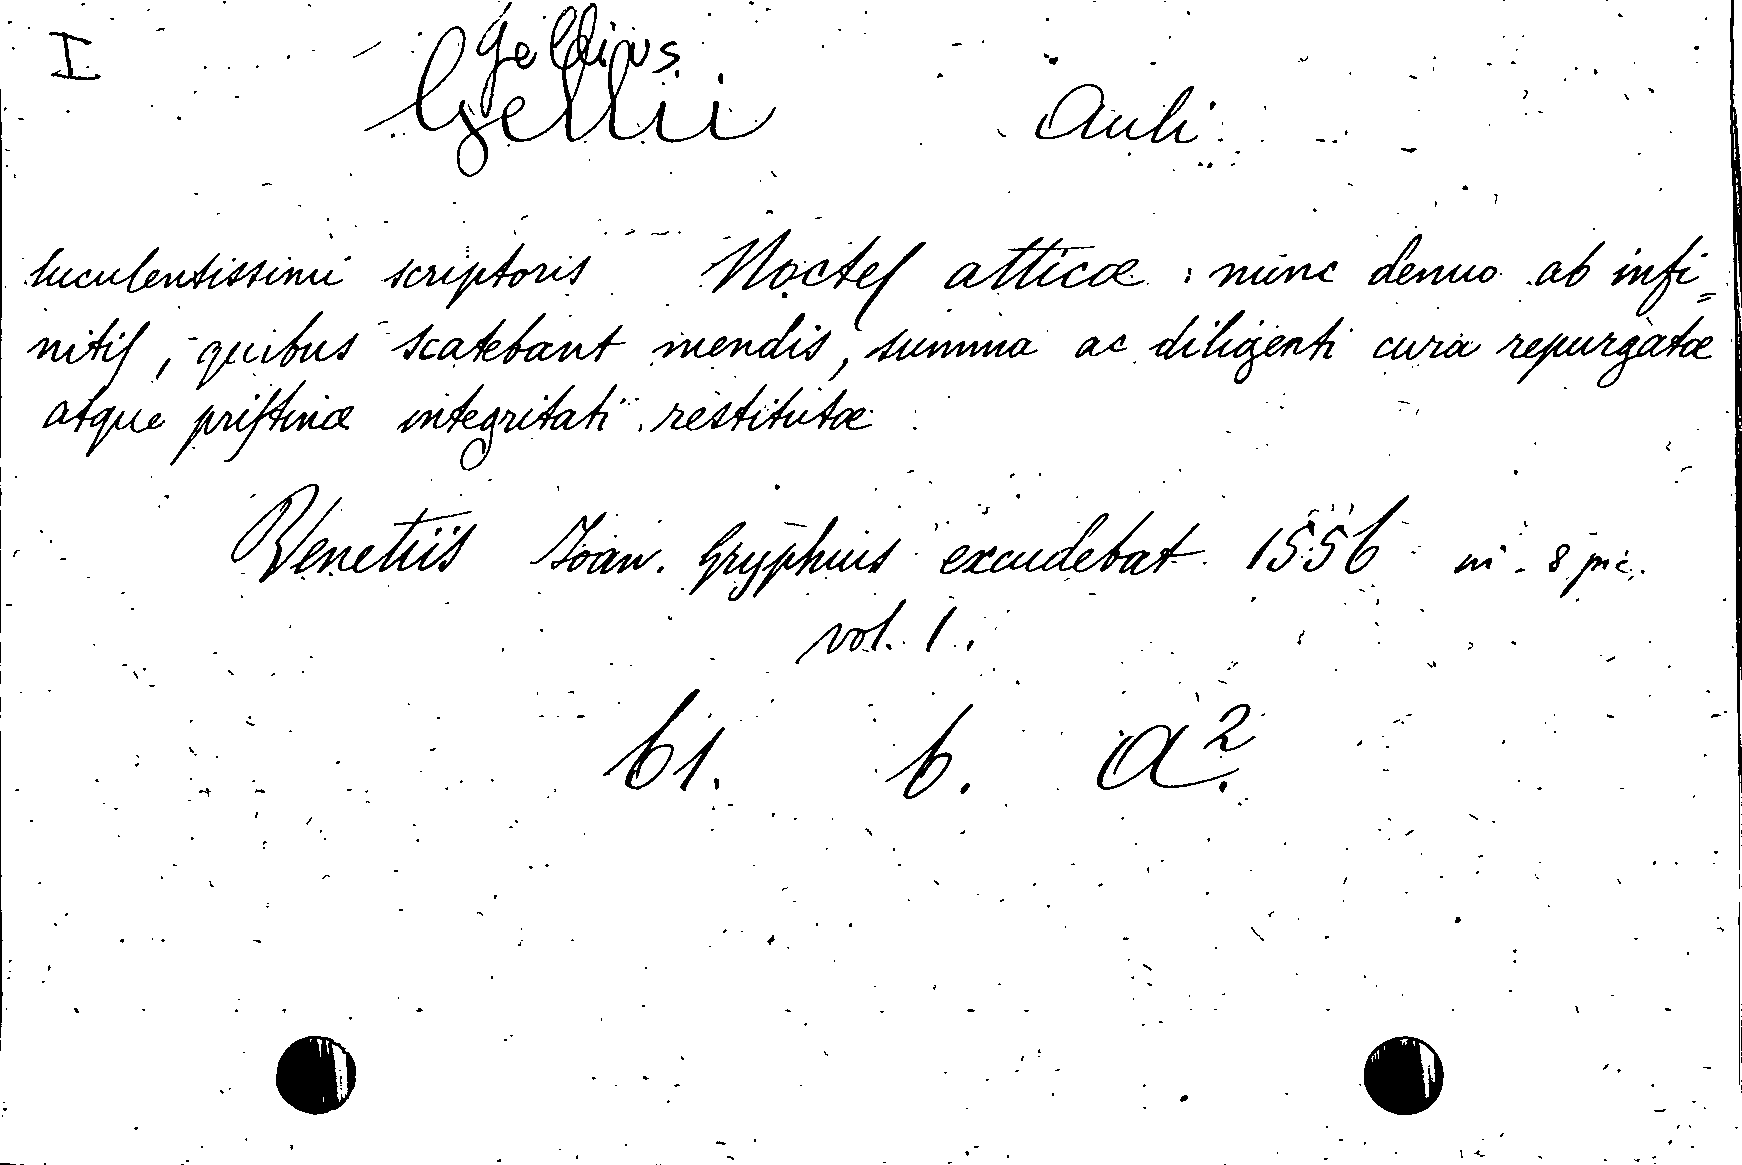 I
Gellius
Gellii Auli
luculentissimi scriptoris Noctes atticæ : nunc denuo ab infi=
nitis, quibus scatebant mendis, summa ac diligenti cura repurgatæ
atque pristinæ integritati restitutæ
Venetiis Ioan. Gryphius excudebat 1556 in 8 pic.
vol. 1.
61. 6. a².